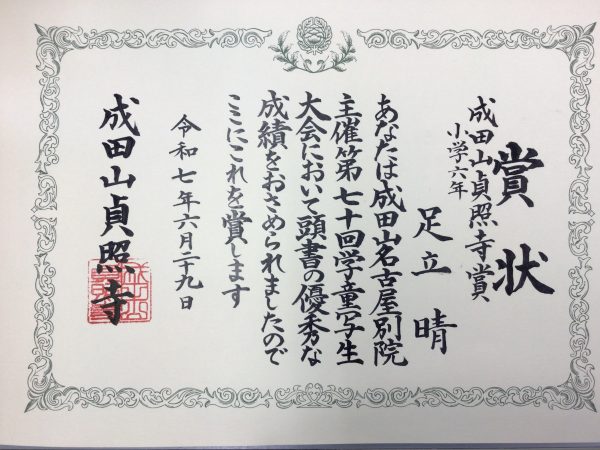 賞状
成田山貞照寺賞
小学六年
足立晴
あなたは成田山名古屋別院
主催第七十回学童写生
大会において頭書の優秀な
成績をおさめられましたので
ここにこれを賞します
令和七年六月二十九日
成田山貞照寺